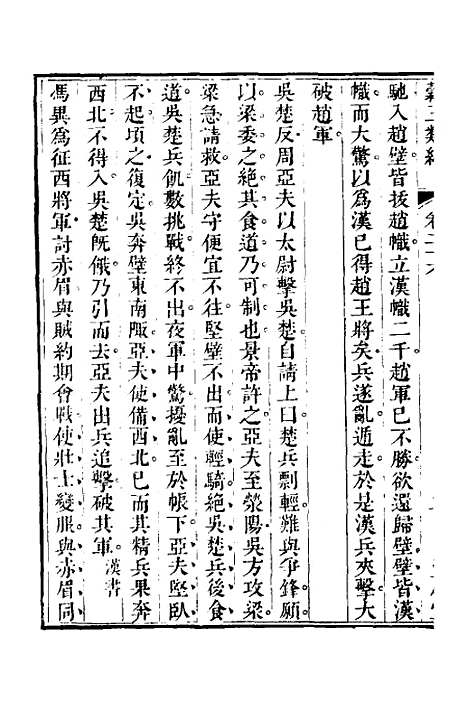 馳入趙壁皆拔趙幟立漢幟二千趙軍已不勝欲還歸壁壁皆漢
幟而大驚以爲漢已得趙王將矣兵遂亂遁走於是漢兵夾擊大
破趙軍
吳楚反周亞夫以太尉擊吳楚自請上曰楚兵剽輕難與爭鋒願
以梁委之絕其食道乃可制也景帝許之亞夫至滎陽吳方攻梁
梁急請救亞夫守便宜不往堅壁不出而使輕騎絕吳楚兵後食
道吳楚兵飢數挑戰終不出夜軍中驚擾亂至於帳下亞夫堅臥
不起頃之復定吳奔壁東南陬亞夫使備西北已而其精兵果奔
西北不得入吳楚旣餓乃引而去亞夫出兵追擊破其軍漢書
馮異爲征西將軍討赤眉與賊約期會戰使壯士變服與赤眉同